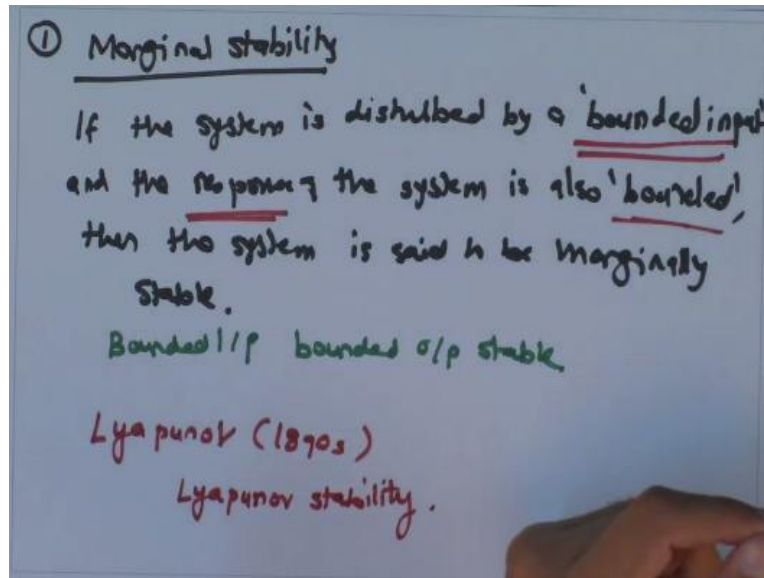 ① Marginal stability
If the system is disturbed by a 'bounded input'
and the response of the system is also 'bounded',
then the system is said to be marginally
stable.
Bounded i/p bounded o/p stable.
Lyapunov (1890s)
Lyapunov stability.